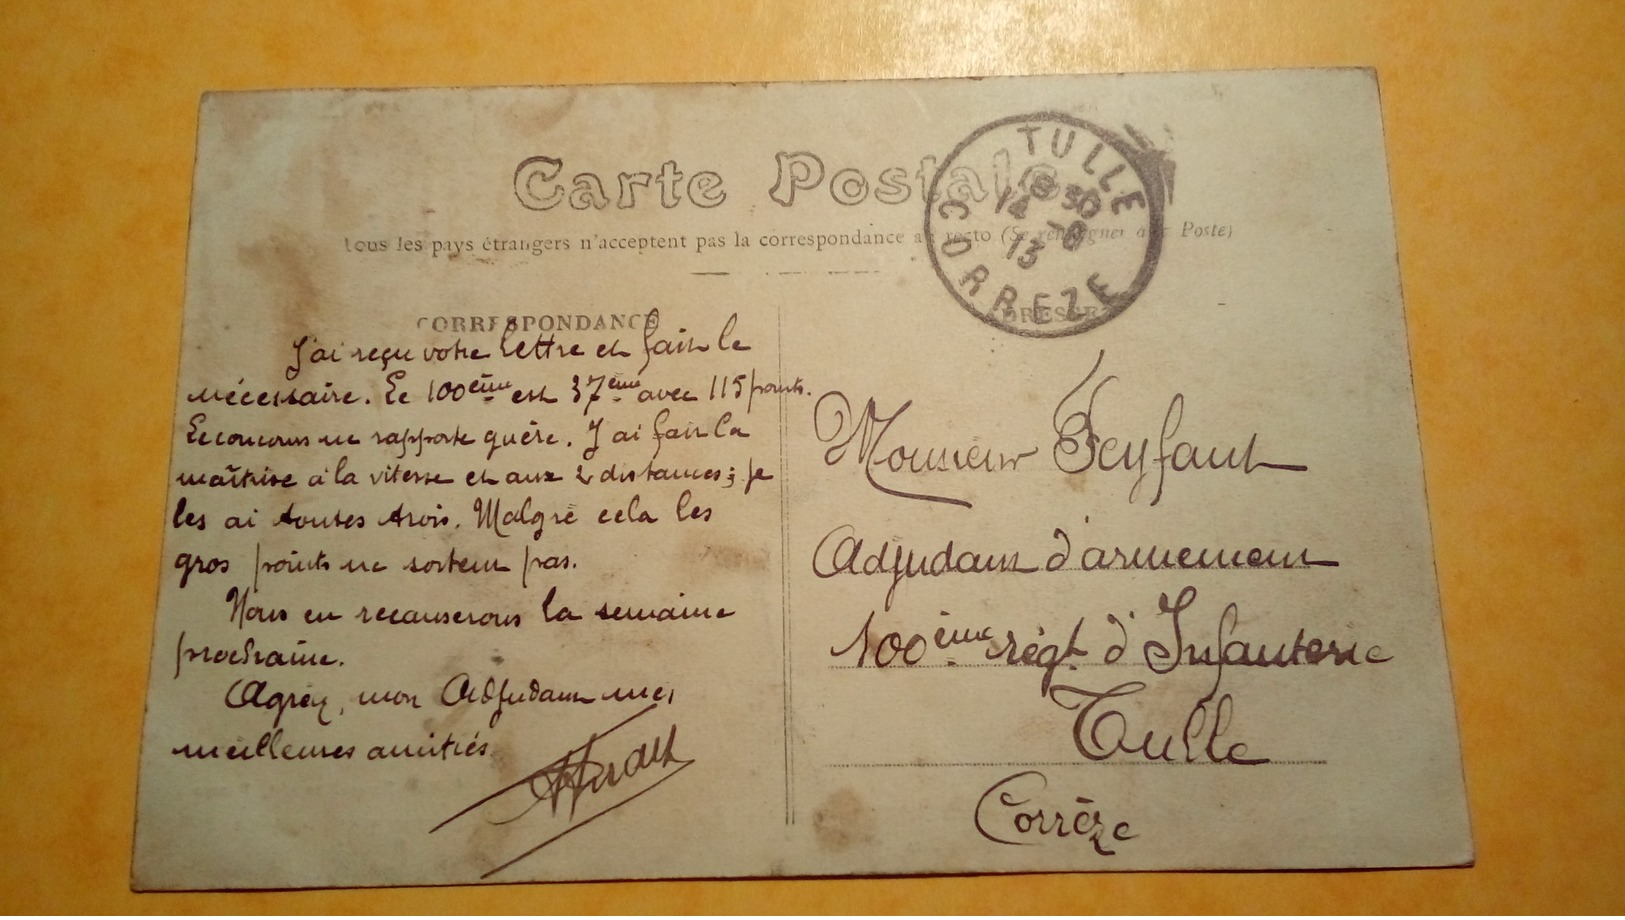 Carte Postale
Tous les pays étrangers n'acceptent pas la correspondance au recto (Se renseigner à la Poste)
TULLE
18 30
14 - 8
13
CORREZE
CORRESPONDANCE
ADRESSE
J'ai reçu votre lettre et fait le
nécessaire. Le 100ème est 37ème avec 115 points.
Le concours ne rapporte guère. J'ai fait la
maîtrise à la vitesse et aux 2 distances; je
les ai toutes trois. Malgré cela les
gros points ne sortent pas.
Nous en recauserons la semaine
prochaine.
Agréez, mon Adjudant mes
meilleures amitiés
Monsieur Feyfant
Adjudant d'armement
100ème régt. d'Infanterie
Tulle
Corrèze